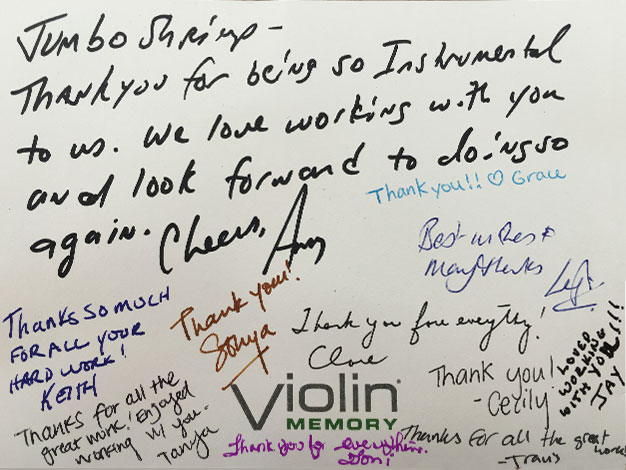 Jumbo Shrimp -
Thank you for being so Instrumental
to us. We love working with you
and look forward to doing so
again. Cheers, Amy
Thank you!! ♡ Grace
Best wishes &
Many thanks
Thanks so much
for all your
hard work!
Keith
Thank you!
Sonya
Thank you for everything!
Thank you!
-Cecily
Loved
working
with you!!!
Jay
Thanks for all the
great work! Enjoyed
working w/ you-
Tanya
Violin®
MEMORY
Thank you for everything.
Thanks for all the great work!